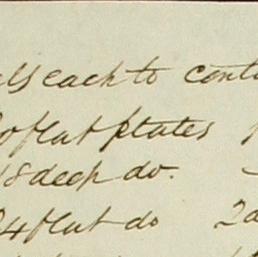 each to conta
flat plates
18 deep do.
24 flat do 2d